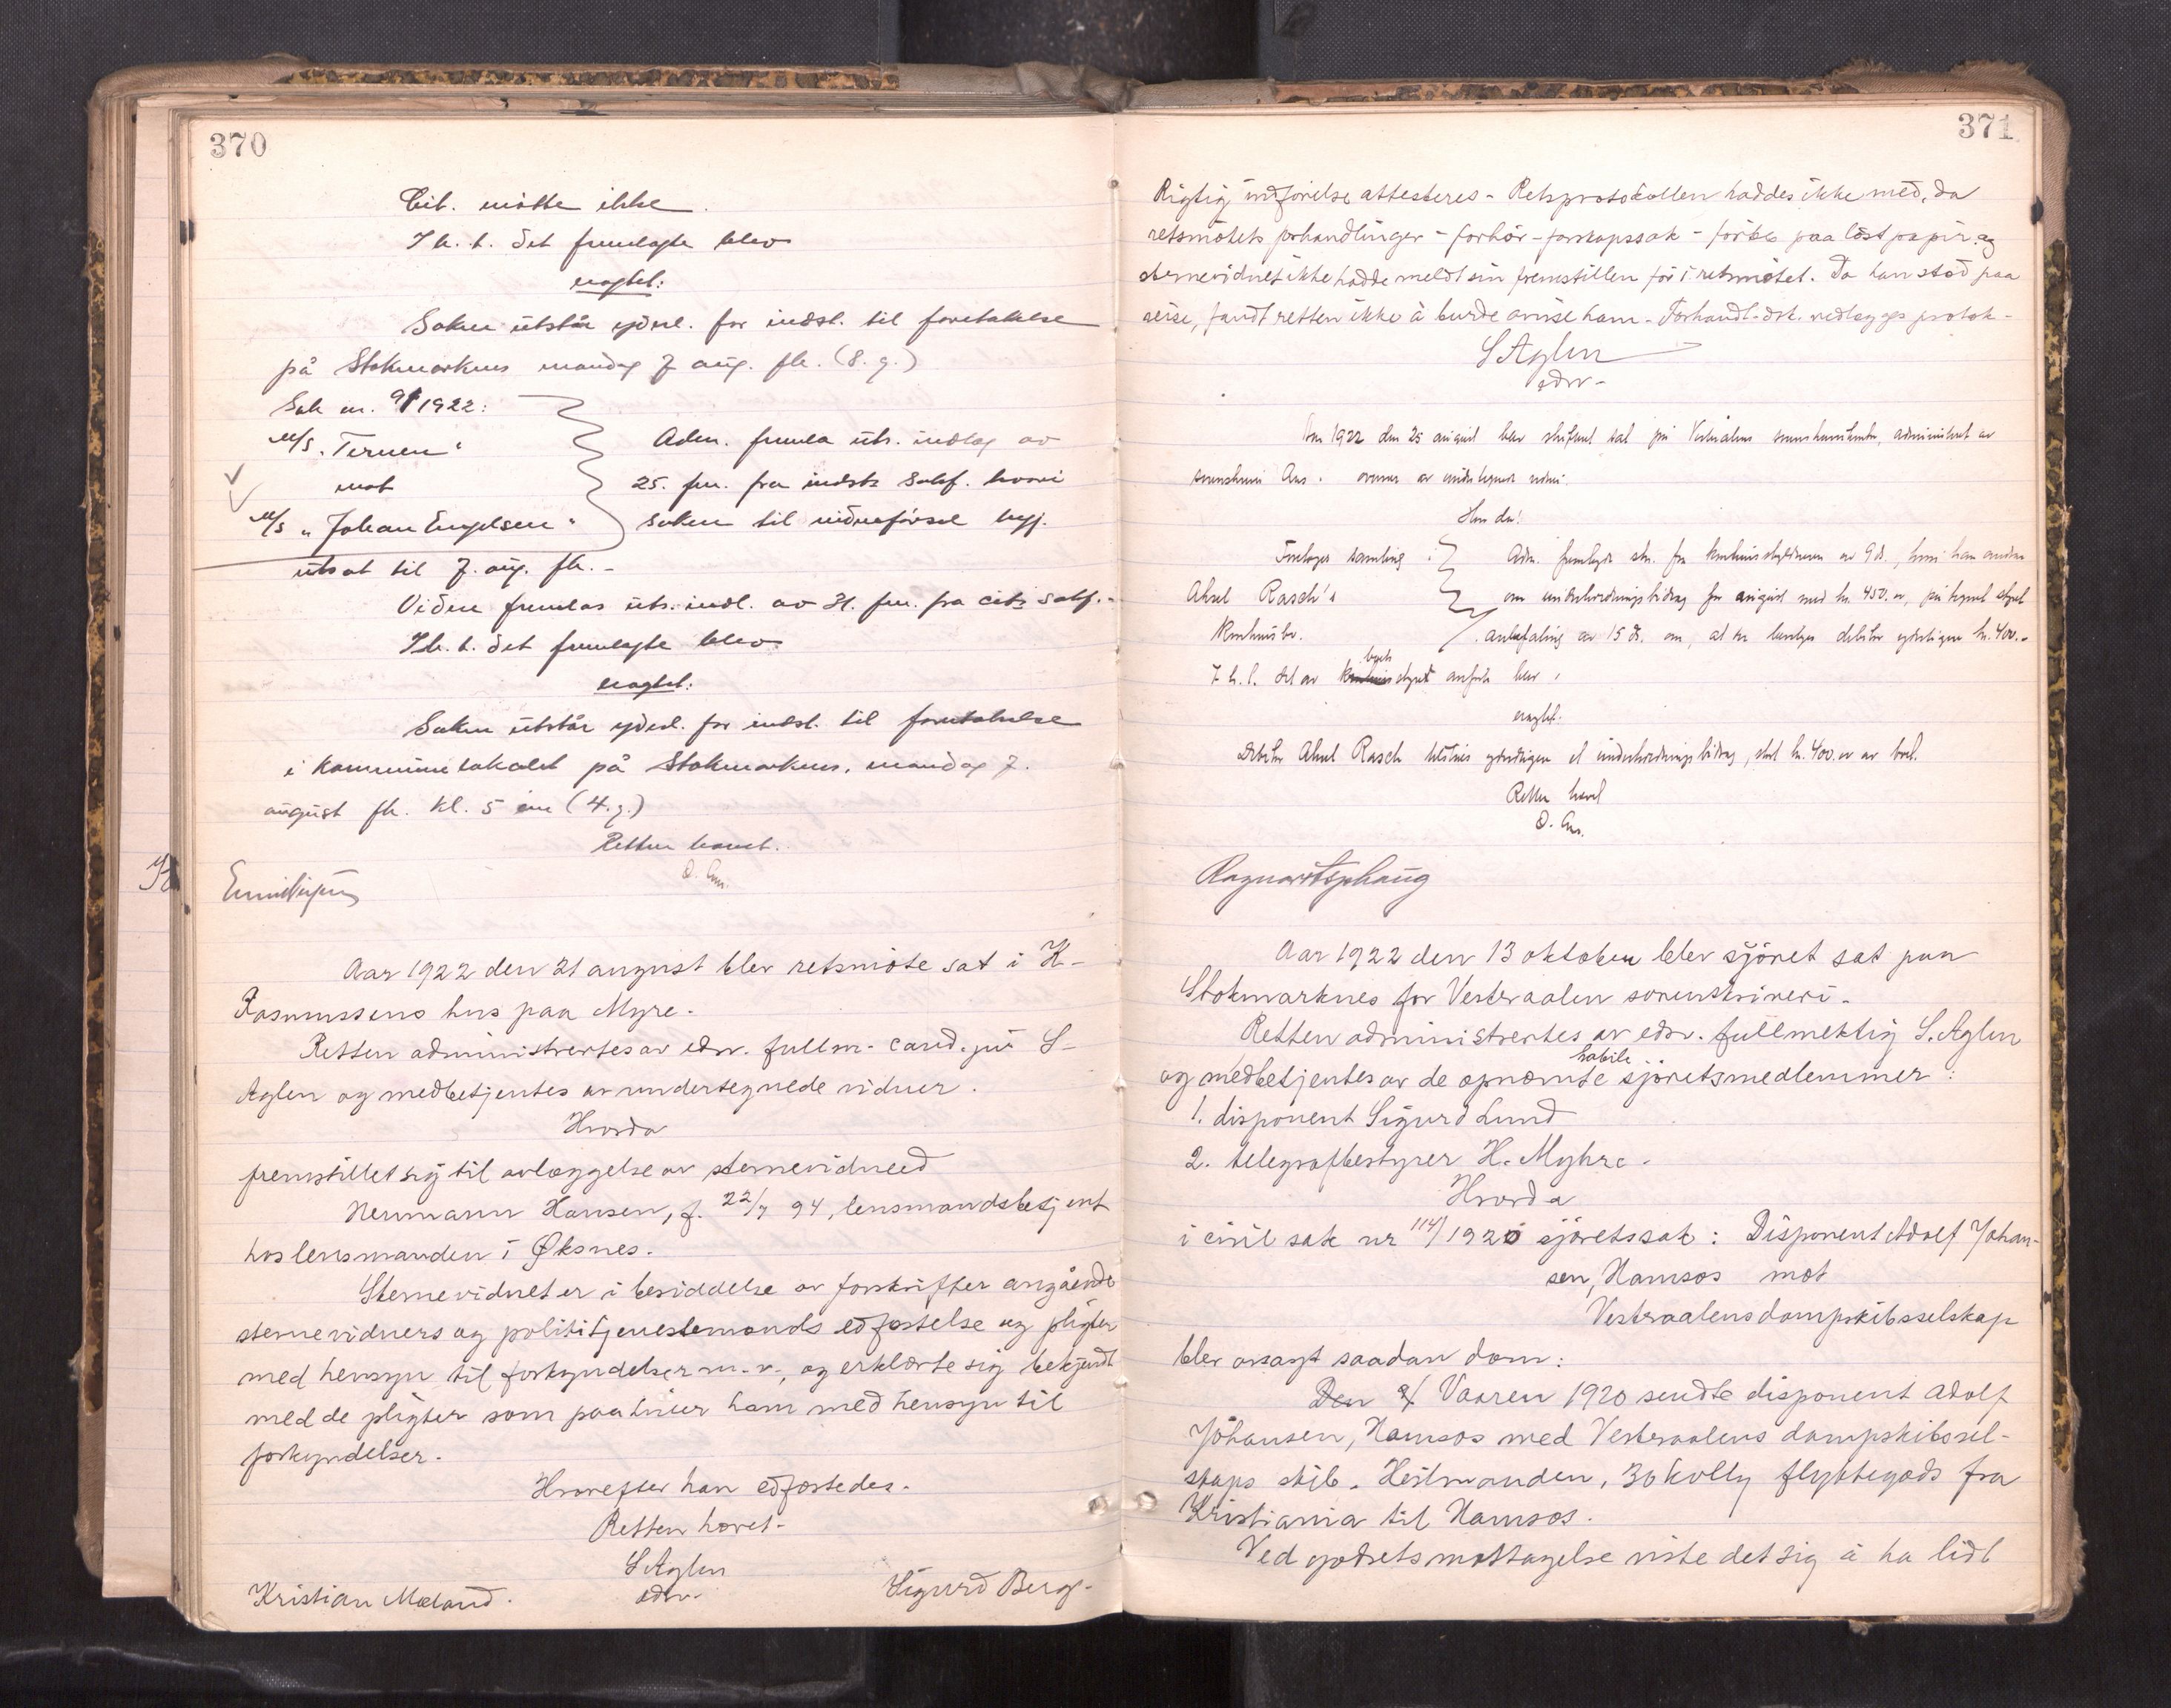 370
Cit. møtte ikke.
I h. t. det fremlagte blev
eragtet:
Saken utstår yderl. for indst. til foretakelse
på Stokmarknes mandag 7 aug. fh. (8. g.)
Sak nr. 91/1922:
M/S „Ternen"
mot
M/S „Johan Engelsen"
Adm. fremla uts. indlæg av
25. fm. fra indsts sakf. hvori
saken til vidneførsel begj.
utsat til 7. aug. fh. -
Viden fremlas uts. indl. av 31. fm. fra cits sakf. -
I h. t. det fremlagte blev
eragtet:
Saken utstår yderl. for indst. til foretakelse
i kommunelokalet på Stokmarknes, mandag 7.
august fh. kl. 5 em (4. g.)
Retten hævet.
Aar 1922 den 21 august blev retsmøte sat i K-
Rasmussens hus paa Myre.
Retten administrertes av edsv. fullm- cand. jur S-
Aglen og medbetjentes av undertegnede vidner.
Hvorda
fremstillet sig til avlæggelse av stevnevidneed
Neumann Hansen, f. 22/7 94, lensmandsbetjent
hos lensmanden i Øksnes.
Stevnevidnet er i besiddelse av forskrifter angående
stevnevidners og polititjenestemænds edfæstelse og pligter
med hensyn til forkyndelser m. v., og erklærte sig bekjendt
med de pligter som paahviler ham med hensyn til
forkyndelser.
Hvorefter han edfæstedes.
Retten hævet-
S Aglen
edsv.
Kristian Mæland.
Sigurd Berg-
371
Rigtig indførelse attesteres - Retsprotokollen haddes ikke med, da
retsmøtets forhandlinger - forhør - farskapssak - førtes paa løst papir og
stevnevidnet ikke hadde meldt sin fremstillen før i retsmøtet. Da han stod paa
reise, fandt retten ikke å burde avvise ham - Forhandl.dok. vedlægges protok-
S Aglen
edsv-
Aar 1922 den 25 august blev skifteret sat på Vesterålens sorenskriverkontor, administrert av
sorenskriver overvær av undertegnede vidne:
Hvorda:
Foretages samling i
Aksel Rasch's
konkursbo.
Adm. fremlagde skr. fra konkursskyldneren av 9 ds., hvori han andrar
om underholdningsbidrag for august med kr. 450.00, påtegnet styret
anbefaling av 15 ds. om, at der bevilges debitor yderligere kr. 400.-
I h. t. det av bosts styret anførte blev
eragtet:
Debitor Aksel Rasch tilståes yderligere et underholdningsbidrag, stort kr. 400.00 av boet.
Retten hævet
Aar 1922 den 13 oktober blev sjøret sat paa
Stokmarknes for Vesteraalen sorenskriveri.
Retten administrertes av edsv. fullmektig S. Aglen
og medbetjentes av de opnævnte habile sjøretsmedlemmer:
1. disponent Sigurd Lund
2. telegrafbestyrer H. Myhre.
Hvorda
i civil sak nr 114/1920 sjøretssak: Disponent Adolf Johan-
sen, Namsos mot
Vesteraalens dampskibsselskap
blev avsagt saadan dom:
Den Vaaren 1920 sendte disponent Adolf
Johansen, Namsos med Vesteraalens dampskibssel-
skaps skib „Heilmanden„ 30 kolly flyttegods fra
Kristiania til Namsos.
Ved godsets mottagelse viste det sig å ha lidt